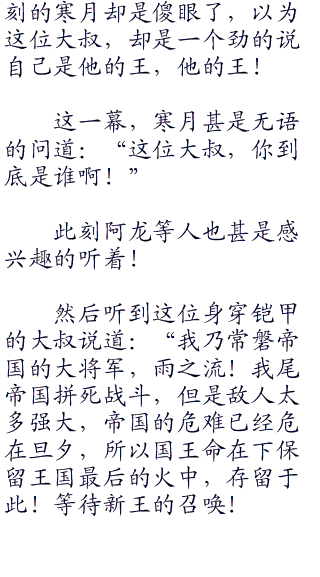 刻的寒月却是傻眼了，以为
这位大叔，却是一个劲的说
自己是他的王，他的王！
这一幕，寒月甚是无语
的问道：“这位大叔，你到
底是谁啊！”
此刻阿龙等人也甚是感
兴趣的听着！
然后听到这位身穿铠甲
的大叔说道：“我乃常磐帝
国的大将军，雨之流！我尾
帝国拼死战斗，但是敌人太
多强大，帝国的危难已经危
在旦夕，所以国王命在下保
留王国最后的火中，存留于
此！等待新王的召唤！